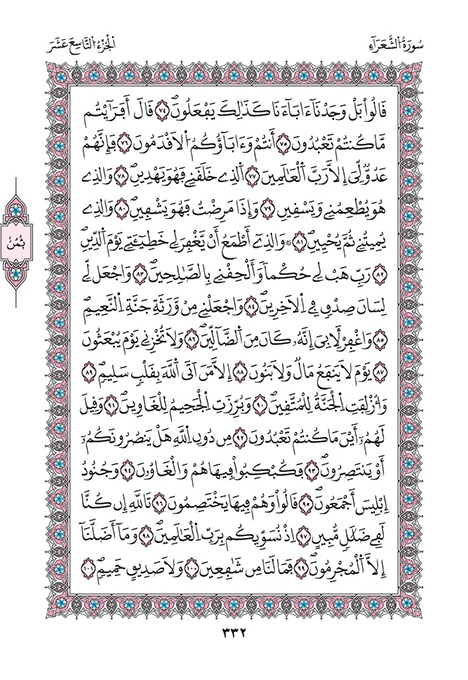 سُورَةُ الشُّعَرَاءِ
الجُزْءُ التَّاسِعَ عَشَرَ
قَالُواْ بَلْ وَجَدْنَآ ءَابَآءَنَا كَذَٰلِكَ يَفْعَلُونَ ٧٤ قَالَ أَفَرَٰيْتُم
مَّا كُنتُمْ تَعْبُدُونَ ٧٥ أَنتُمْ وَءَابَآؤُكُمُ اُلَاقْدَمُونَ ٧٦ فَإِنَّهُمْ
عَدُوٌّ لِّيَ إِلَّا رَبَّ اَلْعَٰلَمِينَ ٧٧ اَلذِے خَلَقَنِے فَهُوَ يَهْدِينِ ٧٨ وَالذِے
هُوَ يُطْعِمُنِے وَيَسْقِينِ ٧٩ وَإِذَا مَرِضْتُ فَهُوَ يَشْفِينِ ٨٠ وَالذِے
يُمِيتُنِے ثُمَّ يُحْيِينِ ٨١ وَالذِےٓ أَطْمَعُ أَنْ يَّغْفِرَ لِے خَطِيٓـَٔتِے يَوْمَ اَلدِّينِ
٨٢ رَبِّ هَبْ لِے حُكْماً وَأَلْحِقْنِے بِالصَّٰلِحِينَ ٨٣ وَاجْعَل لِّے
لِسَانَ صِدْقٍ فِے اِلَاخِرِينَ ٨٤ وَاجْعَلْنِے مِنْ وَّرَثَةِ جَنَّةِ اِلنَّعِيمِ
٨٥ وَاغْفِرْ لِأَبِيَ إِنَّهُۥ كَانَ مِنَ اَلضَّآلِّينَ ٨٦ وَلَا تُخْزِنِے يَوْمَ يُبْعَثُونَ
٨٧ يَوْمَ لَا يَنفَعُ مَالٌ وَلَا بَنُونَ ٨٨ إِلَّا مَنَ اَتَى اَللَّهَ بِقَلْبٍ سَلِيمٍ ٨٩
وَأُزْلِفَتِ اِلْجَنَّةُ لِلْمُتَّقِينَ ٩٠ وَبُرِّزَتِ اِلْجَحِيمُ لِلْغَاوِينَ ٩١ وَقِيلَ
لَهُمُۥٓ أَيْنَ مَا كُنتُمْ تَعْبُدُونَ ٩٢ مِن دُونِ اِللَّهِ هَلْ يَنصُرُونَكُمُۥٓ
أَوْ يَنتَصِرُونَ ٩٣ فَكُبْكِبُواْ فِيهَا هُمْ وَالْغَاوُۥنَ ٩٤ وَجُنُودُ
إِبْلِيسَ أَجْمَعُونَ ٩٥ قَالُواْ وَهُمْ فِيهَا يَخْتَصِمُونَ ٩٦ تَاللَّهِ إِن كُنَّا
لَفِے ضَلَٰلٍ مُّبِينٍ ٩٧ إِذْ نُسَوِّيكُم بِرَبِّ اِلْعَٰلَمِينَ ٩٨ وَمَآ أَضَلَّنَآ
إِلَّا اَلْمُجْرِمُونَ ٩٩ فَمَا لَنَا مِن شَٰفِعِينَ ١٠٠ وَلَا صَدِيقٍ حَمِيمٍ ١٠١
ثُمُنْ
٣٣٢